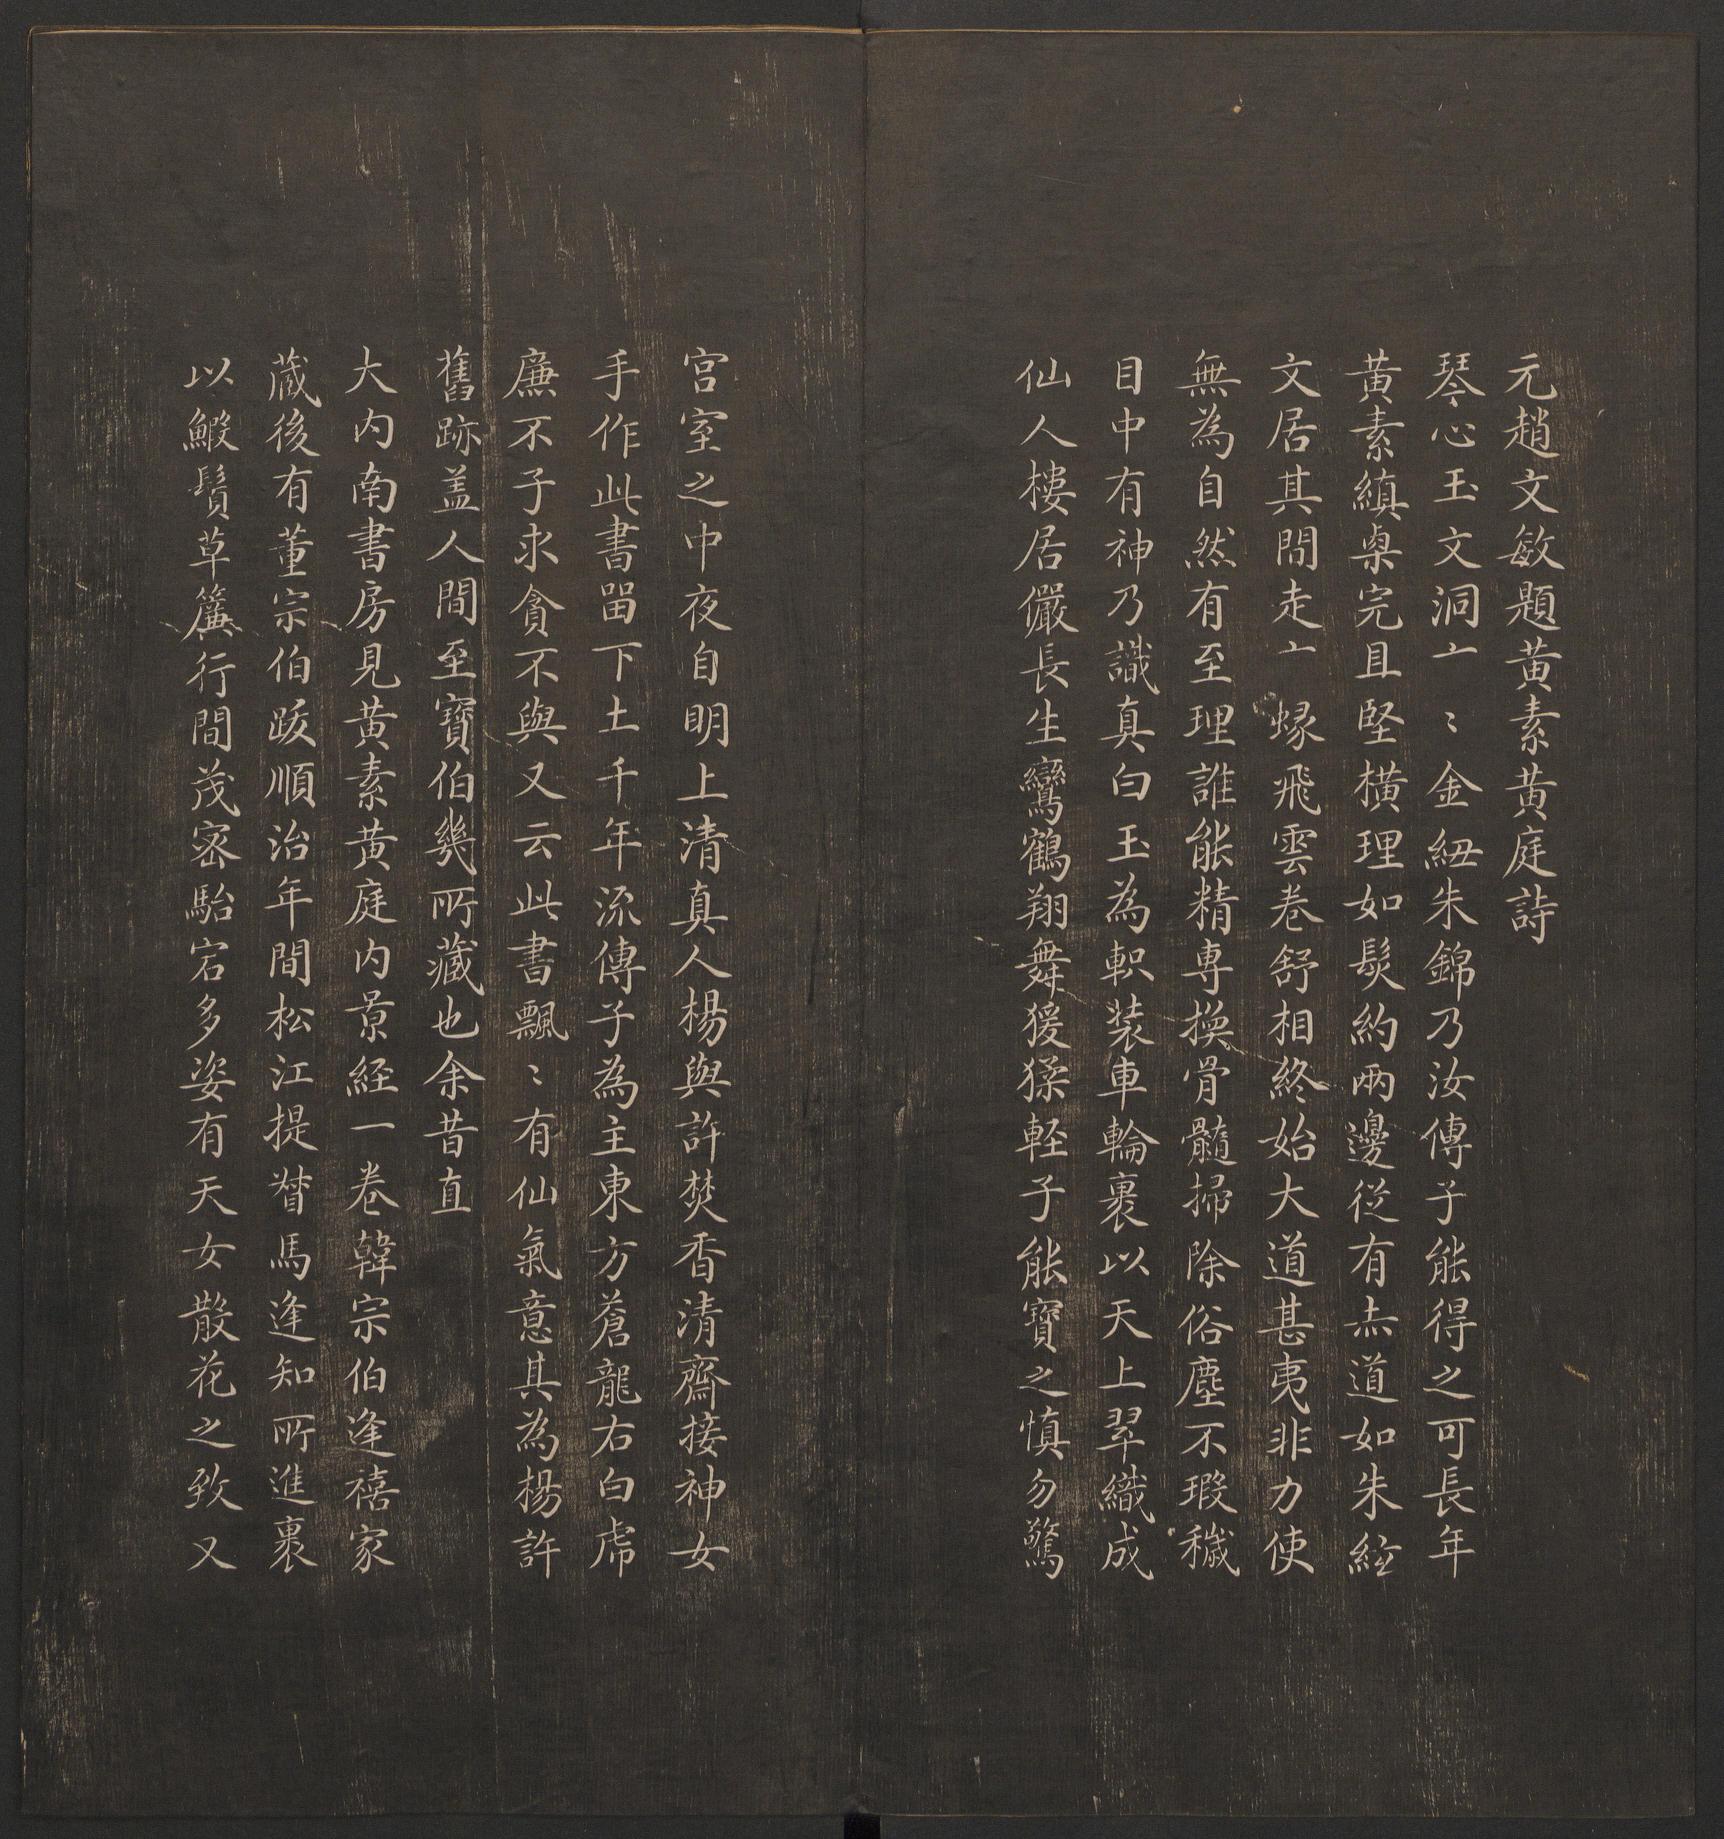 元趙文敏題黃素黃庭詩
琴心玉文洞亠〻金紐朱錦乃汝傳子能得之可長年
黃素縝㮚完且堅橫理如髮約兩邊從有赤道如朱絃
文居其間走亠蜒飛雲卷舒相終始大道甚夷非力使
無為自然有至理誰能精專換骨髓掃除俗塵不瑕穢
目中有神乃識真白玉為軹裝車輪裹以天上翠織成
仙人樓居儼長生鸞鶴翔舞猨猱輕子能寶之慎勿驚
宮室之中夜自明上清真人楊與許焚香清齋接神女
手作此書留下土千年流傳子為主東方蒼龍右白虎
廉不子求貪不與又云此書飄〻有仙氣意其為楊許
舊跡盖人間至寶伯幾所藏也余昔直
大内南書房見黃素黃庭内景経一卷韓宗伯逢禧家
藏後有董宗伯跋順治年間松江提督馬逢知所進裹
以鰕鬚草簾行間茂密駘宕多姿有天女散花之致又